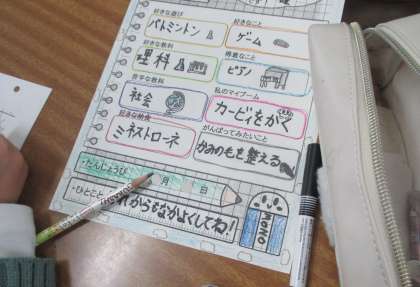 好きな遊び
バドミントン
好きなこと
ゲーム
好きな教科
理科
得意なこと
ピアノ
苦手な教科
社会
私のマイブーム
カービィをかく
好きな給食
ミネストローネ
がんばってみたいこと
かみのもを整える
・たんじょうび
月 日
・ひとこと
これからもなかよくしてね!
MONO